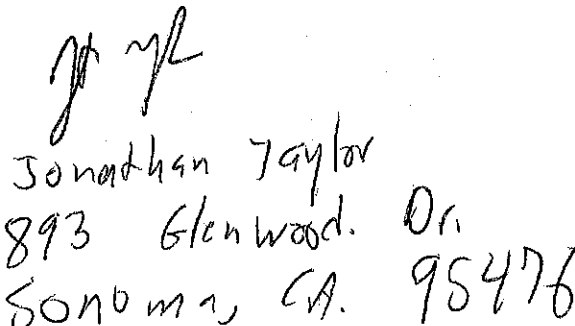 Jonathan Taylor
893 Glenwood. Dr.
Sonoma, CA. 95476